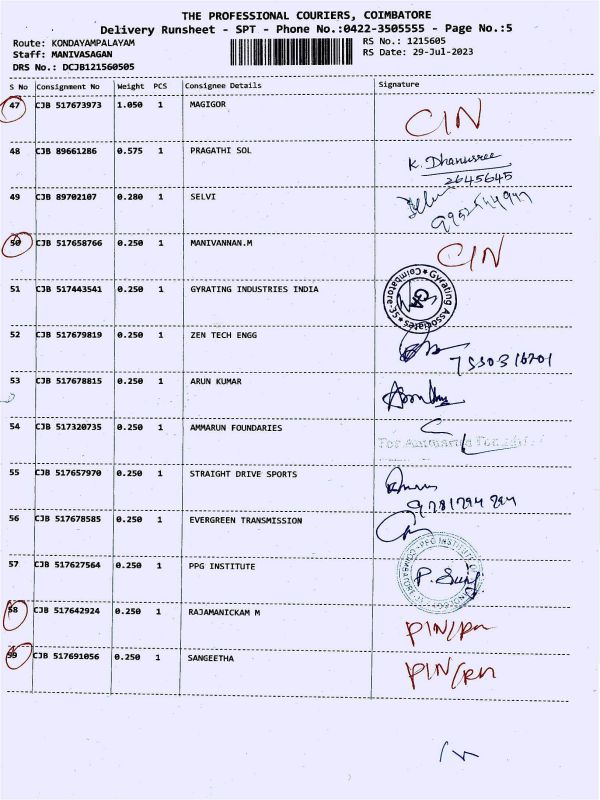 THE PROFESSIONAL COURIERS, COIMBATORE
Delivery Runsheet - SPT - Phone No.:0422-3505555 - Page No.:5
Route: KONDAYAMPALAYAM
RS No.: 1215605
Staff: MANIVASAGAN
RS Date: 29-Jul-2023
DRS No.: DCJB121560505
S No Consignment No Weight PCS Consignee Details Signature
47 CJB 517673973 1.050 1 MAGIGOR CIN
48 CJB 89661286 0.575 1 PRAGATHI SOL K. Dhanusree
2645645
49 CJB 89702107 0.280 1 SELVI
50 CJB 517658766 0.250 1 MANIVANNAN.M CIN
51 CJB 517443541 0.250 1 GYRATING INDUSTRIES INDIA Gyrating Associates Coimbatore
52 CJB 517679819 0.250 1 ZEN TECH ENGG
53 CJB 517678815 0.250 1 ARUN KUMAR
54 CJB 517320735 0.250 1 AMMARUN FOUNDARIES
55 CJB 517657970 0.250 1 STRAIGHT DRIVE SPORTS
56 CJB 517678585 0.250 1 EVERGREEN TRANSMISSION
57 CJB 517627564 0.250 1 PPG INSTITUTE
58 CJB 517642924 0.250 1 RAJAMANICKAM M
59 CJB 517691056 0.250 1 SANGEETHA